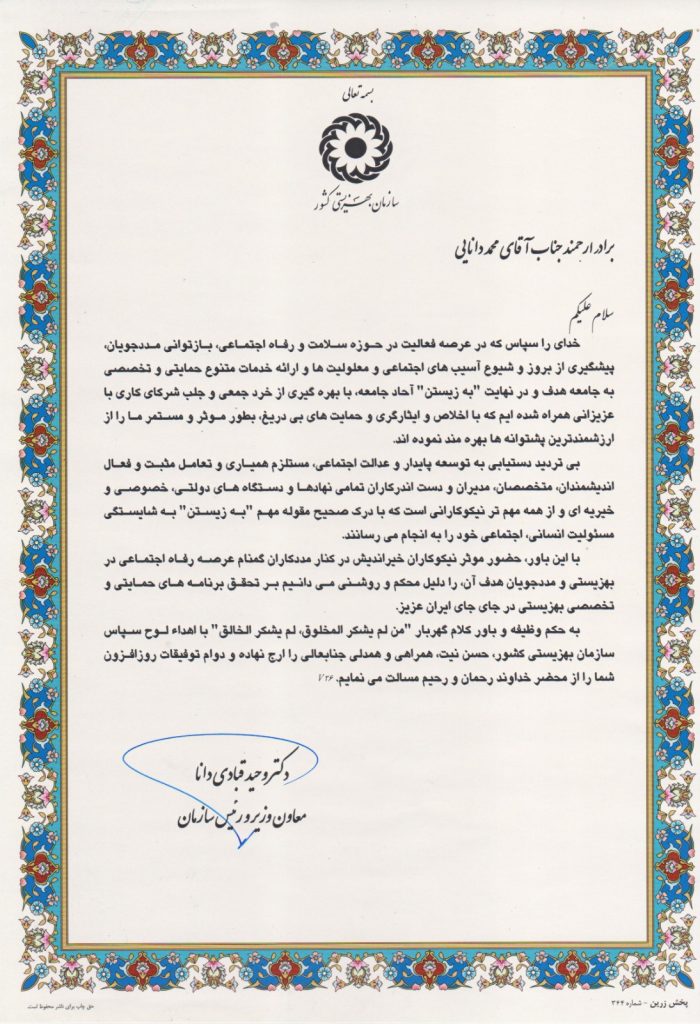 بسمه تعالی
سازمان بهزیستی کشور
برادر ارجمند جناب آقای محمد دانایی
سلام علیکم
خدای را سپاس که در عرصه فعالیت در حوزه سلامت و رفاه اجتماعی، بازتوانی مددجویان،
پیشگیری از بروز و شیوع آسیب های اجتماعی و معلولیت ها و ارائه خدمات متنوع حمایتی و تخصصی
به جامعه هدف و در نهایت "به زیستن" آحاد جامعه، با بهره گیری از خرد جمعی و جلب شرکای کاری با
عزیزانی همراه شده ایم که با اخلاص و ایثارگری و حمایت های بی دریغ، بطور موثر و مستمر ما را از
ارزشمندترین پشتوانه ها بهره مند نموده اند.
بی تردید دستیابی به توسعه پایدار و عدالت اجتماعی، مستلزم همیاری و تعامل مثبت و فعال
اندیشمندان، متخصصان، مدیران و دست اندرکاران تمامی نهادها و دستگاه های دولتی، خصوصی و
خیریه ای و از همه مهم تر نیکوکارانی است که با درک صحیح مقوله مهم "به زیستن" به شایستگی
مسئولیت انسانی، اجتماعی خود را به انجام می رسانند.
با این باور، حضور موثر نیکوکاران خیراندیش در کنار مددکاران گمنام عرصه رفاه اجتماعی در
بهزیستی و مددجویان هدف آن، را دلیل محکم و روشنی می دانیم بر تحقق برنامه های حمایتی و
تخصصی بهزیستی در جای جای ایران عزیز.
به حکم وظیفه و باور کلام گهربار "من لم یشکر المخلوق، لم یشکر الخالق" با اهداء لوح سپاس
سازمان بهزیستی کشور، حسن نیت، همراهی و همدلی جنابعالی را ارج نهاده و دوام توفیقات روزافزون
شما را از محضر خداوند رحمان و رحیم مسالت می نمایم.
دکتر وحید قبادی دانا
معاون وزیر و رئیس سازمان
پخش زرین - شماره ۳۶۴
حق چاپ برای ناشر محفوظ است